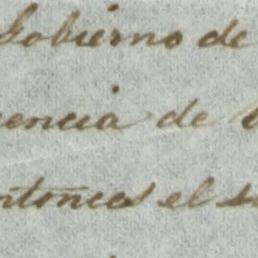 Gobierno de
encia de
ntonces el